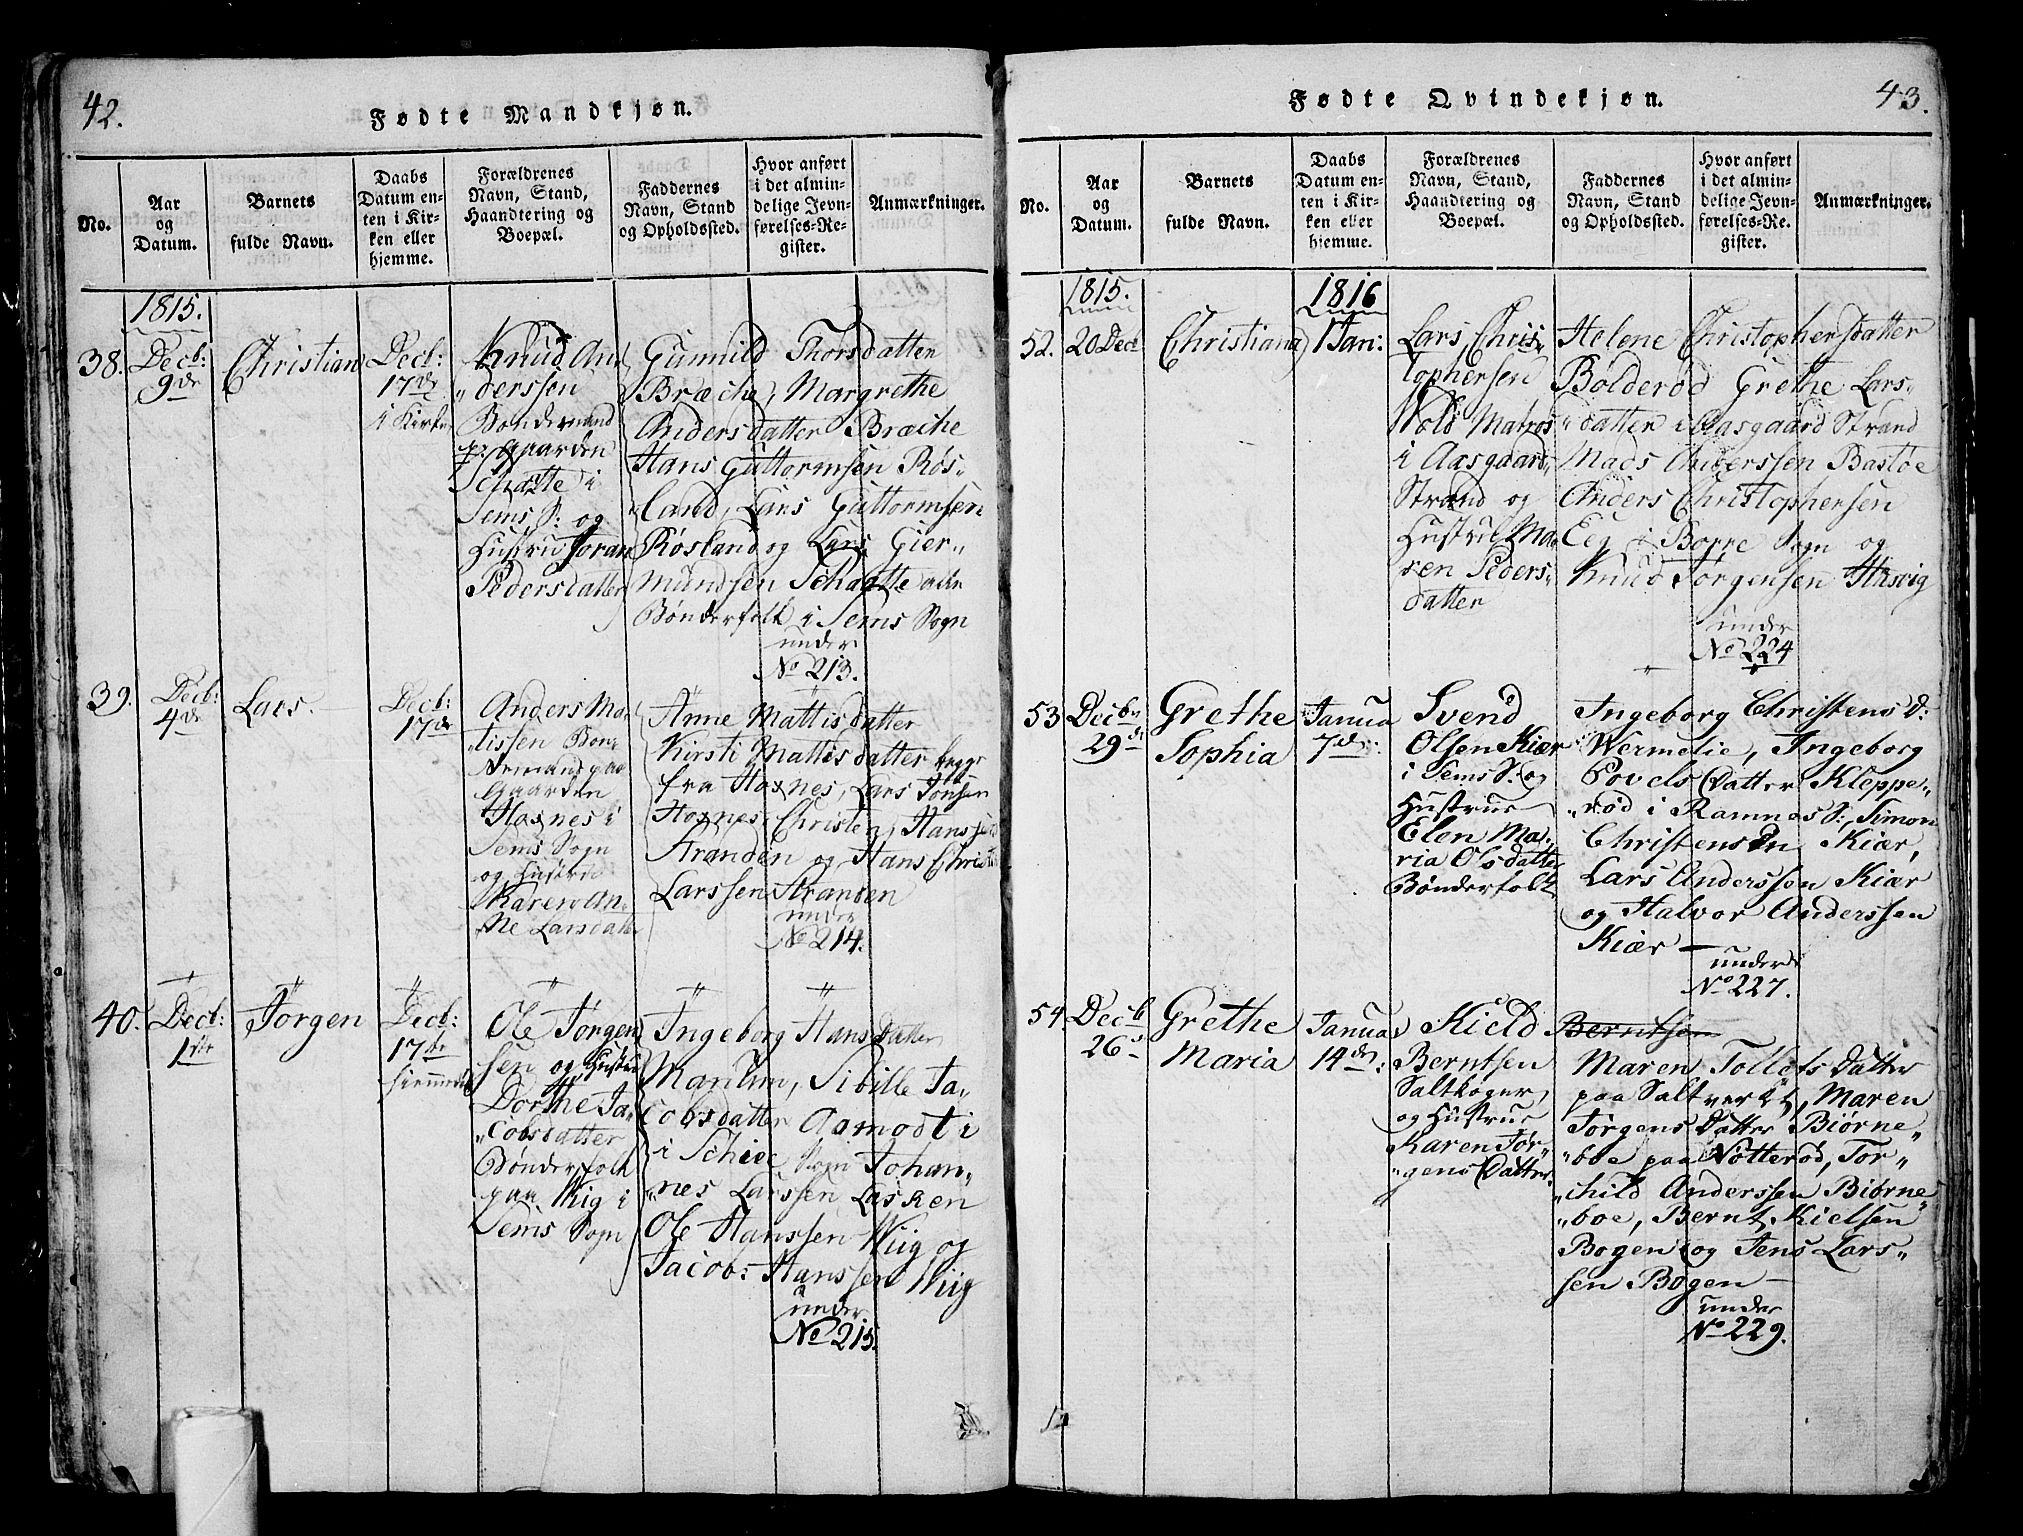 42.
Fødte Mandkjøn.
No.
Aar og Datum.
Barnets fulde Navn.
Daabs Datum enten i Kirken eller hjemme.
Forældrenes Navn, Stand, Haandtering og Boepæl.
Faddernes Navn, Stand og Opholdssted.
Hvor anført i det almindelige Jevnførelses-Register.
Anmærkninger.
1815.
38.
Decb:
9de
Christian
Decb:
17de
i Kirken
Knud An
„derssen
Bondemand
paa Gaarden
Schatte i
Sems S: og
Hustru Joran
Pedersdatter
Gunnild Thorsdatter
Bræche, Margrethe
Andersdatter Bræche
Hans Guttormsen Røs„
land, Lars Guttormsen
Røsland og Lars Gier„
mundsen Schatte alle
Bønderfolk i Sems Sogn
under
No 213.
39.
Decb:
4de
Lars.
Decb:
17de
Anders Ma„
tissen Bon„
demand paa
Gaarden
Haxnes i
Sems Sogn
og Hustrue
Karen An„
ne Larsdatter
Anne Mattisdatter
Kirsti Mattisdatter begge
fra Haxnes, Lars Jonsen
Haxnes, Christen Hanssen
Stranden og Hans Christ
Larssen Stranden
under
No 214.
40.
Decb:
1ste
Jørgen
Decb:
17de
hiemmedt
Ole Jørgen
sen og Hustru
Dorthe Ja„
„cobsdatter
Bønderfolk
paa Wiig i
Sems Sogn
Ingeborg Hansdatter
Manum, Sibille Ja„
cobsdatter Aamodt i
i Schiee Sogn Johan„
„nes Larssen Lasken
Ole Hanssen Wiig og
Jacob: Hanssen Wiig
under
No 215.
43.
Fødte Qvindekjøn.
No.
Aar og Datum.
Barnets fulde Navn.
Daabs Datum enten i Kirken eller hjemme.
Forældrenes Navn, Stand, Haandtiering og Boepæl.
Faddernes Navn, Stand og Opholdssted.
Hvor anført i det almindelige Jevnførelses-Register.
Anmærkninger.
1815.
1816
52.
20 Dec
Christiana
1 Jan:
Lars Chris„
tophersen
Wold Matros
i Aasgaard„
Strand og
Hustrue Ma„
ren Peders„
datter
Helene Christophersdatter
Bolderød Grethe Lars„
„datter i Aasgaard Strand
Mads Anderssen Bastøe
Anders Christophersen
Eeg i Borre Sogn og
Knud Jørgensen Hasvig
under
No 224
53
Decb
29de
Grethe
Sophia
Janua
7de:
Svend
Olsen Kiær
i Sems S. og
Hustrue
Elen Ma„
ria Olsdatter
Bønderfolk
Ingeborg Christens D:
Wermelie, Ingeborg
Povels Datter Kleppe„
„rød i Ramnes S:, Simon
Christensen Kiær,
Lars Anderssen Kiær
og Halvor Anderssen
Kiær —
under
No 227.
54
Decb
26
Grethe
Maria
Janua
14de:
Kield
Berntsen
Saltkoger
og Hustrue
Karen Jør„
„gens Datter
Berntsen
Maren Tollefs Datter
paa Saltverket, Maren
Jørgens Datter Biørne„
„boe paa Nøtterød, Tor„
„child Anderssen Biørne„
„boe, Bernt Kielsen
Bogen og Jens Lars„
sen Bogen —
under
No 229.